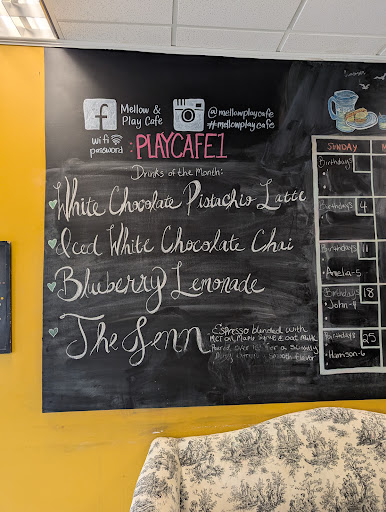 Mellow &
Play Cafe
@mellowplaycafe
#mellowplaycafe
wifi
password
: PLAYCAFE1
Drinks of the Month:
White Chocolate Pistachio Latte
Iced White Chocolate Chai
Blueberry Lemonade
The Jenn
- Espresso blended with
MCT oil, Maple Syrup & oat milk
Poured over ice for a slightly
smooth flavor
SUNDAY
M
Birthdays
Birthdays
4
Birthdays
11
• Amelia-5
Birthdays
18
• John-4
Birthdays
25
• Harrison-6